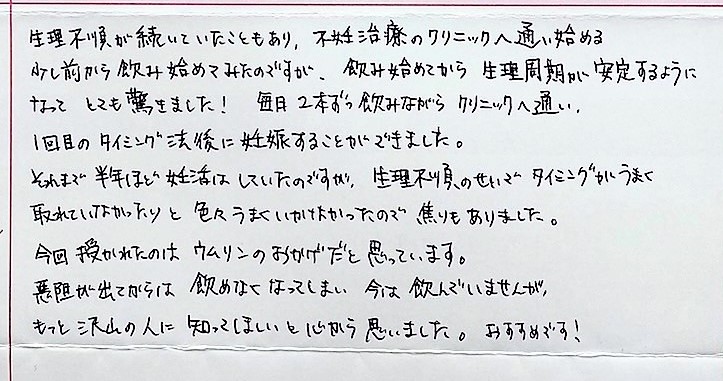 生理不順が続いていたこともあり、不妊治療のクリニックへ通い始める
少し前から飲み始めてみたのですが、飲み始めてから生理周期が安定するように
なってとても驚きました！毎日2本ずつ飲みながらクリニックへ通い、
1回目のタイミング法後に妊娠することができました。
それまで半年ほど妊活はしていたのですが、生理不順のせいでタイミングがうまく
取れていなかったりと色々うまくいかなかったので焦りもありました。
今回授かれたのはウムリンのおかげだと思っています。
悪阻が出てからは飲めなくなってしまい今は飲んでいませんが、
もっと沢山の人に知ってほしいと心から思いました。おすすめです！